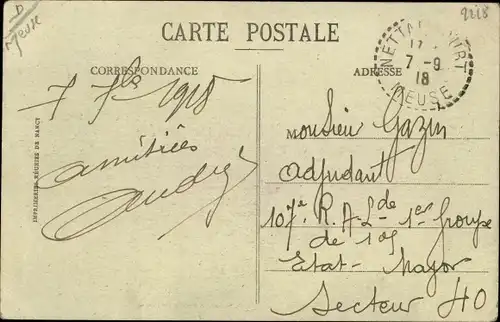 D
Meuse
2218
CARTE POSTALE
CORRESPONDANCE
ADRESSE
NETTANCOURT
7-9
18
MEUSE
7 7bre 1918
amitiés
IMPRIMERIES RÉUNIES DE NANCY
Monsieur Gazin
Adjudant
107e R.A.L. de 1er Groupe
de 105
Etat-Major
Secteur 40